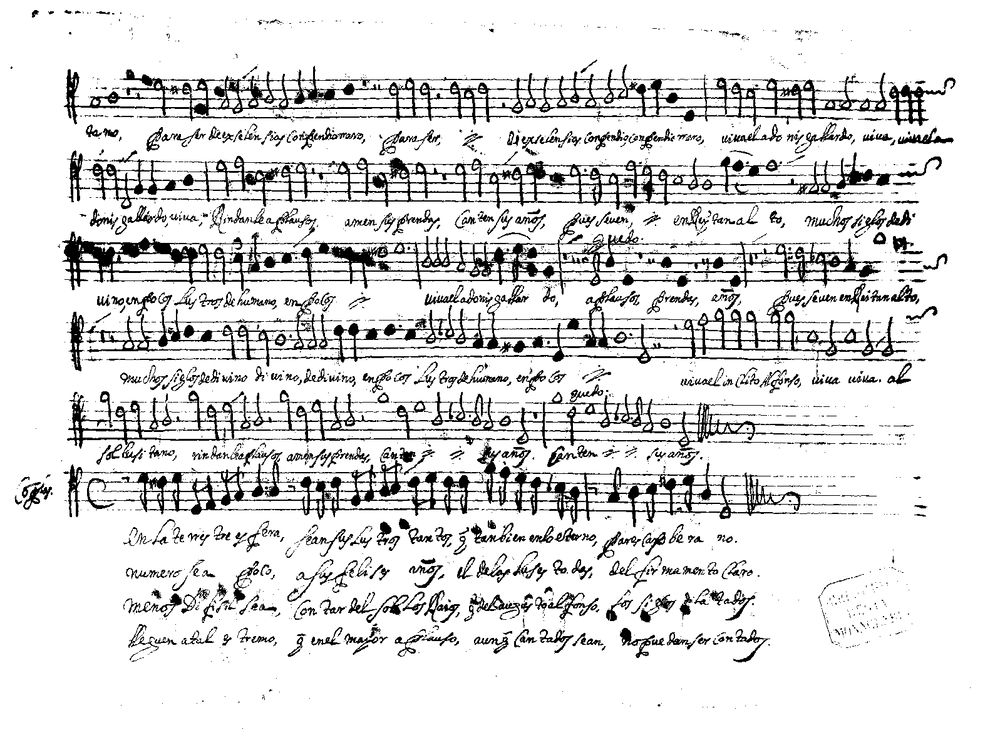 tano, para ser de exselensias conpendio raro, para ser, // de exselensias conpendio conpendio raro, viva el adonis gallardo, viva, viva el a
donis gallardo, viva, Rindanle aplausos, amen sus prendas, Canten sus años, pues se ven // en Rey tan al to, muchos siglos de di
quedo.
vino, en pocos Lustros de humano, en pocos // viva el adonis gallar do, aplausos prendas, años, pues se ven en Rei tan alto,
muchos siglos de divino di vino, de divino, en pocos Lustros de humano, en pocos // viva el inclito Alfonso, viva viva. al
quedo.
sol lusi tano, rindanle aplausos amen sus prendas, canten // // sus años. Canten // // sus años.
Coplas.
En la te rres tre es fera, sean sus Lustros tantos q̃ tanbien en lo eterno, pares caso be ra no.
numero sea poco, a sus felises años, el de las luses to das, del firmamento claro.
menos sea, Contar del sol Los Raios, Alfonso, Los siglos dilatados.
lleguen a tal es tremo, q̃ en el mayor aplauso, aunq̃ Contados sean, no puedan ser contados.